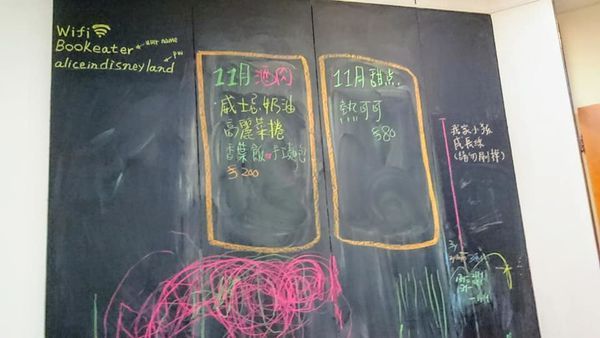 Wifi
Bookeater ← user name
aliceindisneyland ← pw
11月酒肉
威士忌奶油
高麗菜捲
香葉飯
$200
11月甜点
熱可可
$80
我家小孩
成長線
(請勿刷掉)